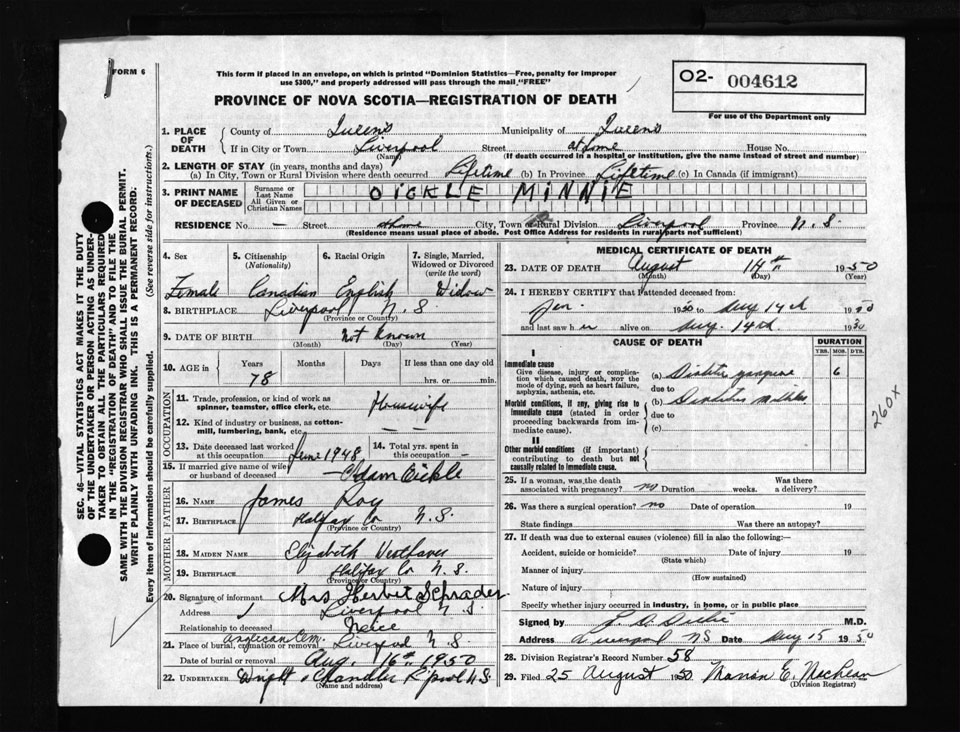 FORM 6
This form if placed in an envelope, on which is printed "Dominion Statistics—Free, penalty for improper
use $300," and properly addressed will pass through the mail "FREE"
O2- 004612
For use of the Department only
PROVINCE OF NOVA SCOTIA—REGISTRATION OF DEATH
SEC. 46—VITAL STATISTICS ACT MAKES IT THE DUTY
OF THE UNDERTAKER OR PERSON ACTING AS UNDER-
TAKER TO OBTAIN ALL THE PARTICULARS REQUIRED
IN THE "REGISTRATION OF DEATH" AND TO FILE THE
SAME WITH THE DIVISION REGISTRAR WHO SHALL ISSUE THE BURIAL PERMIT.
WRITE PLAINLY WITH UNFADING INK. THIS IS A PERMANENT RECORD.
Every item of information should be carefully supplied. (See reverse side for instructions.)
1. PLACE OF DEATH County of Queens Municipality of Queens
If in City or Town Liverpool Street at home House No.
(Name) (If death occurred in a hospital or institution, give the name instead of street and number)
2. LENGTH OF STAY (in years, months and days)
(a) In City, Town or Rural Division where death occurred Lifetime (b) In Province Lifetime (c) In Canada (if immigrant)
3. PRINT NAME OF DECEASED Surname or Last Name OICKLE MINNIE
All Given or Christian Names
RESIDENCE No. — Street at home City, Town or Rural Division Liverpool Province N.S.
(Residence means usual place of abode. Post Office Address for residents in rural parts not sufficient)
4. Sex 5. Citizenship (Nationality) 6. Racial Origin 7. Single, Married, Widowed or Divorced (write the word)
Female Canadian English Widow
8. BIRTHPLACE Liverpool N.S.
(Province or Country)
9. DATE OF BIRTH Not Known
(Month) (Day) (Year)
10. AGE in Years Months Days If less than one day old
78 hrs. or min.
OCCUPATION
11. Trade, profession, or kind of work as spinner, teamster, office clerk, etc. Housewife
12. Kind of industry or business, as cotton-mill, lumbering, bank, etc. — —
13. Date deceased last worked at this occupation June 1948 14. Total yrs. spent in this occupation —
15. If married give name of wife or husband of deceased — Adam Oickle
FATHER
16. NAME James Roy
17. BIRTHPLACE Halifax Co N.S.
(Province or Country)
MOTHER
18. MAIDEN NAME Elizabeth
19. BIRTHPLACE Halifax Co N.S.
(Province or Country)
20. Signature of informant Mrs Herbert Schrader
Address Liverpool N.S.
Relationship to deceased Neice
21. Place of burial, cremation or removal Anglican Cem. Liverpool N.S.
Date of burial or removal Aug. 16th 1950
22. UNDERTAKER Wright & Chandler L'pool N.S.
(Name and address)
MEDICAL CERTIFICATE OF DEATH
23. DATE OF DEATH August 14th 1950
(Month) (Day) (Year)
24. I HEREBY CERTIFY that I attended deceased from:
Jan 1950 to Aug 14th 1950
and last saw her alive on Aug. 14th 1950
CAUSE OF DEATH DURATION
YRS. MOS. DYS.
I
Immediate cause
Give disease, injury or complication which caused death, NOT the mode of dying, such as heart failure, asphyxia, asthenia, etc.
(a) Diabetic gangrene 6
due to
Morbid conditions, if any, giving rise to immediate cause (stated in order proceeding backwards from immediate cause).
(b) Diabetes
due to
(c)
II
Other morbid conditions (if important) contributing to death but not causally related to immediate cause.
260X
25. If a woman, was the death associated with pregnancy? no Duration weeks. Was there a delivery?
26. Was there a surgical operation? no Date of operation 19
State findings Was there an autopsy?
27. If death was due to external causes (violence) fill in also the following:
Accident, suicide or homicide? Date of injury 19
(State which)
Manner of injury
(How sustained)
Nature of injury
Specify whether injury occurred in industry, in home, or in public place
Signed by M.D.
Address Liverpool NS Date Aug 15 1950
28. Division Registrar's Record Number 58
29. Filed 25 August 1950 Marion E.
(Division Registrar)